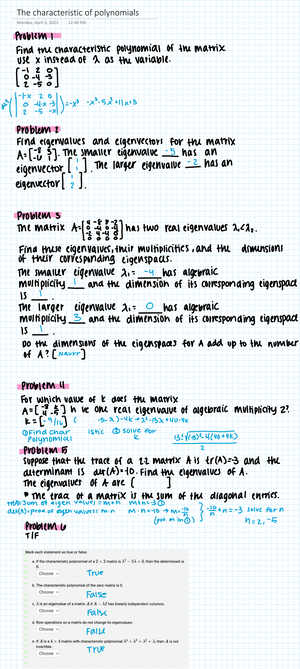 The characteristic of polynomials
Monday, April 3, 2023 12:49 PM
Problem 1
Find the characteristic polynomial of the matrix
Use x instead of λ as the variable.
[-1 2 0
0 -4 3
2 -5 0]
|-1-x 2 0
0 -4-x 3
2 -5 -x| = -x³ -x³-5x²+11x+3
Problem 2
Find eigenvalues and eigenvectors for the matrix
The smaller eigenvalue -5 has an
eigenvector [1 1]. The larger eigenvalue -2 has an
eigenvector [1 2].
Problem 3
The matrix A= has two real eigenvalues λ₁<λ₂.
Find these eigenvalues, their multiplicities, and the dimensions
of their corresponding eigenspaces.
The smaller eigenvalue λ₁= -4 has algebraic
multiplicity 1 and the dimension of its corresponding eigenspace
is 1.
The larger eigenvalue λ₂= 0 has algebraic
multiplicity 3 and the dimension of its corresponding eigenspace
is 1.
Do the dimensions of the eigenspaces for A add up to the number
of A?
Problem 4
For which value of k does the matrix
have one real eigenvalue of algebraic multiplicity 2?
k= [-9/16]
① Find char istic ② solve for
Polynomial k
Problem 5
Suppose that the trace of a 2x2 matrix A is tr(A)=-3 and the
determinant is det(A)=-10. Find the eigenvalues of A.
The eigenvalues of A are [ ]
* The trace of a matrix is the sum of the diagonal entries.
tr(A): Sum of eigen values = m+n m+n=-3 ①
det(A)= prod of eigen values = m·n m·n=-10 → m= -10/n } -10/n +n=-3 solve for n
n=2,-5
Problem 6
T/F
Mark each statement as true or false.
a. If the characteristic polynomial of a 2 × 2 matrix is λ² − 5λ + 6, then the determinant is
6.
Choose
True
b. The characteristic polynomial of the zero matrix is 0.
Choose
False
c. λ is an eigenvalue of a matrix A if A − λI has linearly independent columns.
Choose
False
d. Row operations on a matrix do not change its eigenvalues.
Choose
False
e. If A is a 4 × 4 matrix with characteristic polynomial λ⁴ + λ³ + λ² + λ, then A is not
invertible.
Choose
True